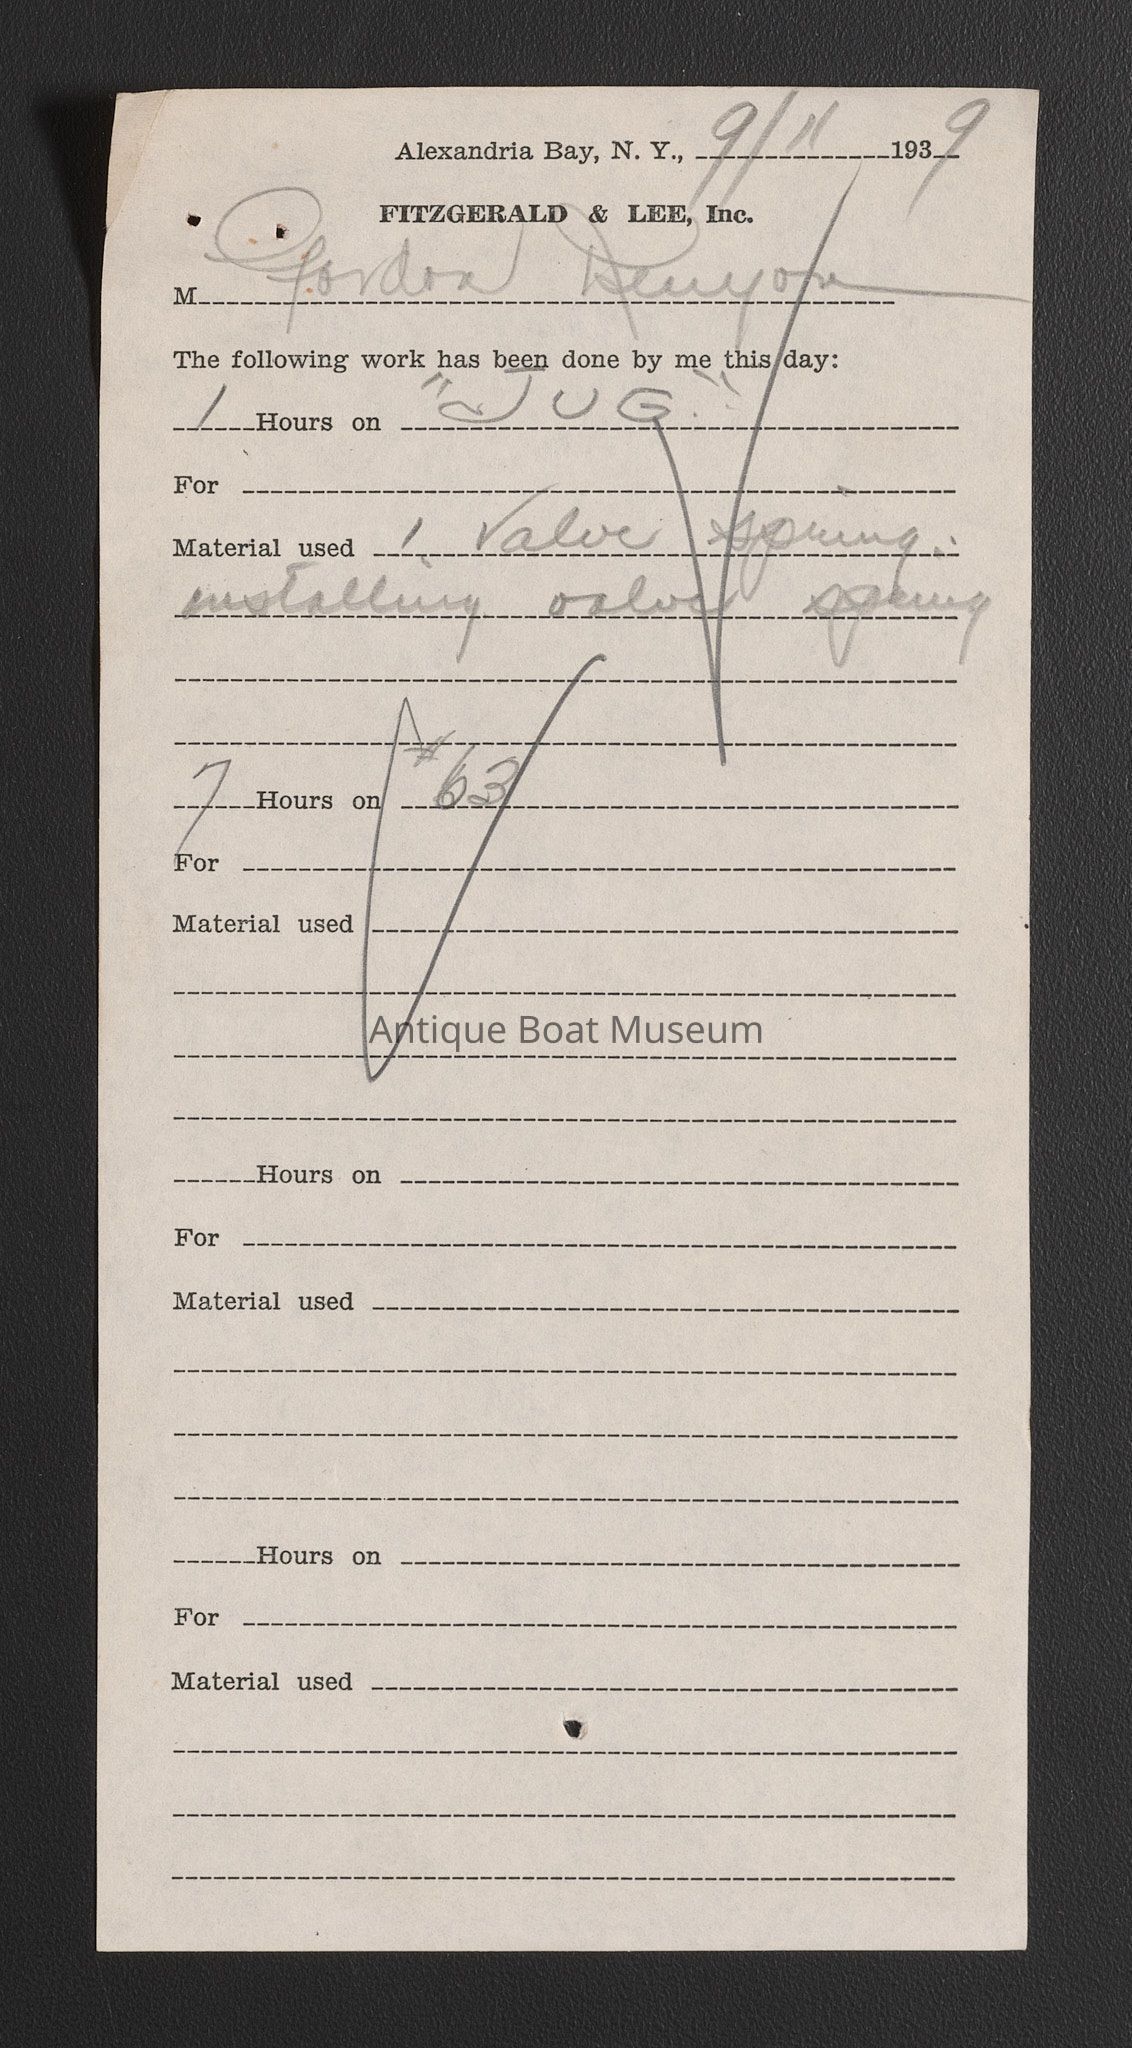 Alexandria Bay, N. Y., 9/11 1939
FITZGERALD & LEE, Inc.
M Gordon Kenyon
The following work has been done by me this day:
1 Hours on "JUG"
For
Material used 1 Valve spring.
installing valve spring
7 Hours on #63
For
Material used
Antique Boat Museum
Hours on
For
Material used
Hours on
For
Material used